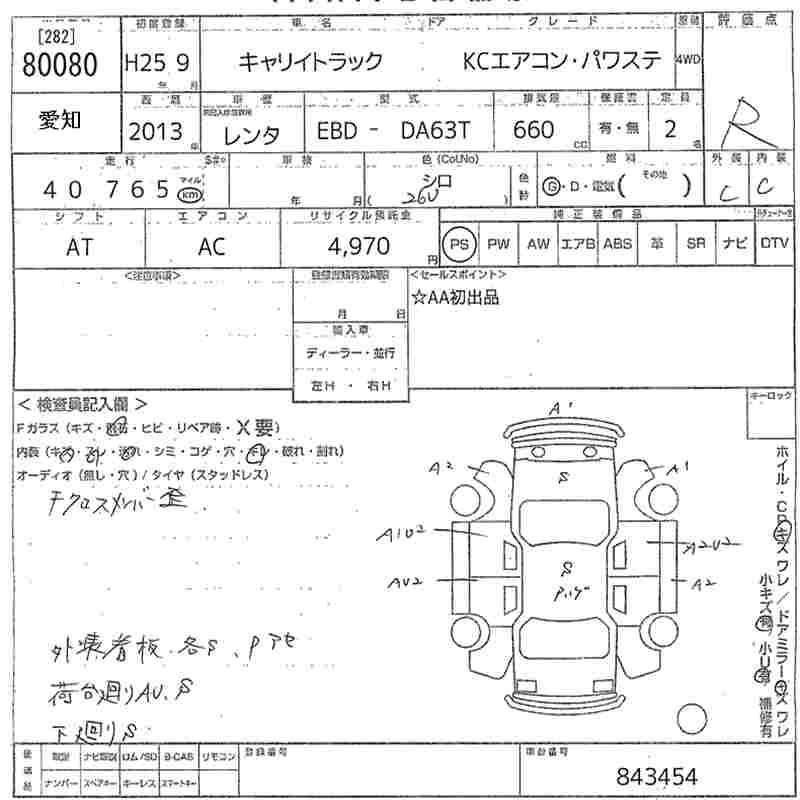 [282]
80080
初度登録
H25 9
年 月
車名 ドア グレード
キャリイトラック KCエアコン・パワステ
原動
4WD
評価点
R
愛知
2013
年
車歴
レンタ
型式
EBD - DA63T
排気量
660
CC
保証書
有・無
定員
2
名
走行
40 765
マイル
km
車検
年 月
色(Col.No)
シロ
( 26U )
色替
燃料
G・D・電気( その他 )
外装 内装
C C
シフト
AT
エアコン
AC
リサイクル預託金
4,970
円
純正装備品
PS PW AW エアB ABS 革 SR ナビ DTV
<注意事項>
登録書類有効期限
月 日
輸入車
ディーラー・並行
左H ・ 右H
<セールスポイント>
☆AA初出品
キーロック
< 検査員記入欄 >
Fガラス (キズ・飛石・ヒビ・リペア跡・X要)
内装 (キズ・スレ・汚れ・シミ・コゲ・穴・キレ・破れ・割れ)
オーディオ (無し・穴) / タイヤ (スタッドレス)
Fクロスメンバー歪
外装看板各S、Pアセ
荷台廻りAU、S
下廻りS
A1
A2 S A1
A1U2 A2U2
AU2 S A2
Pハゲ
ホイル・CPキズ ワレ / ドアミラーキズ ワレ
小キズ有 / 小U有 補修有
後送品
取説 ナビ取説 ロム/SD B-CAS リモコン
ナンバー スペアキー キーレス スマートキー
登録番号
車台番号
843454